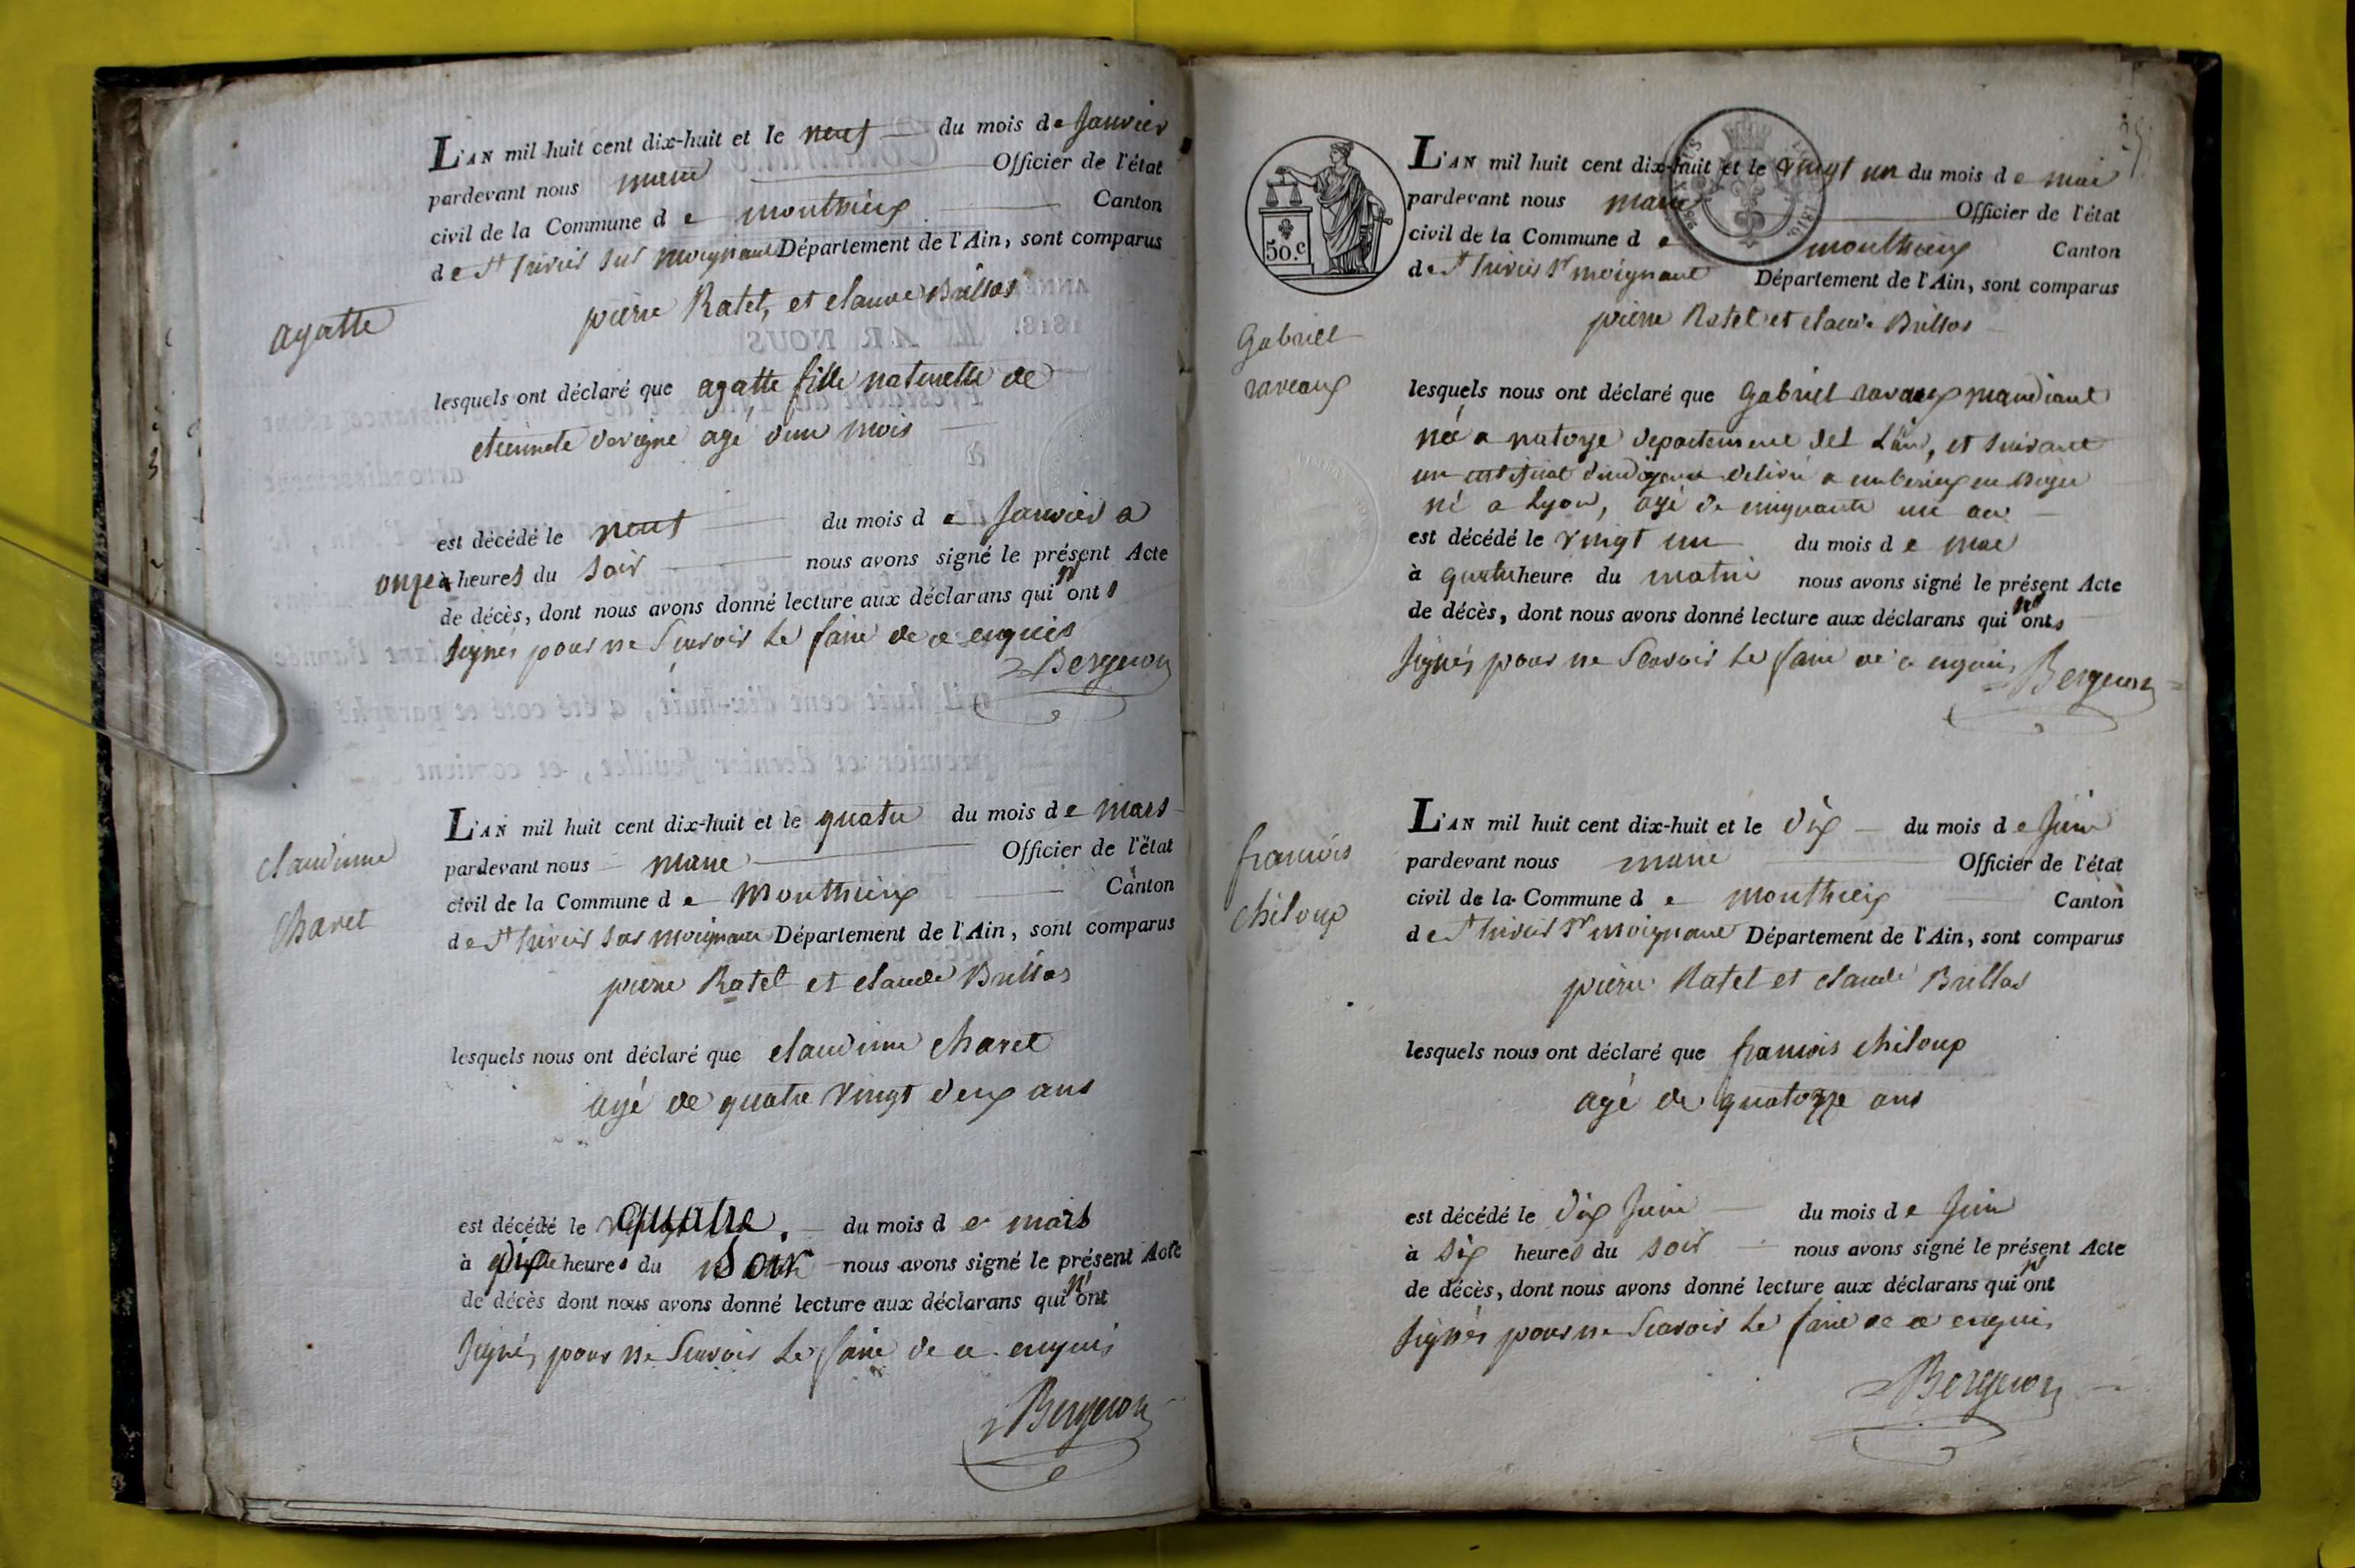 L'AN mil huit cent dix-huit et le neuf du mois de Janvier
pardevant nous maire Officier de l'état
civil de la Commune de monthieux Canton
de St trivier sur moignans Département de l'Ain, sont comparus
pierre Ratel, et claude Brillas
agatte
lesquels ont déclaré que agatte fille naturelle de
etiennete davigne agé d'un mois
est décédé le neuf du mois de Janvier a
onze à heures du soir nous avons signé le présent Acte
de décès, dont nous avons donné lecture aux déclarans qui n'ont
signés pour ne Scavoir le faire de ce enquis
Bergeron
L'AN mil huit cent dix-huit et le quatre du mois de mars
pardevant nous maire Officier de l'état
civil de la Commune de Monthieux Canton
de St trivier sur moignans Département de l'Ain, sont comparus
claudinne
Charet
pierre Ratel et claude Brillas
lesquels nous ont déclaré que claudinne Charet
agé de quatre vingt deux ans
est décédé le quatre. du mois de mars
à dix heures du Soir nous avons signé le présent Acte
de décès dont nous avons donné lecture aux déclarans qui n'ont
signés pour ne Scavoir le faire de ce enquis
Bergeron
50.c
L'AN mil huit cent dix-huit et le vingt un du mois de mai
pardevant nous maire Officier de l'état
civil de la Commune de monthieux Canton
de St trivier sr moignans Département de l'Ain, sont comparus
pierre Ratel et claude Brillas
Gabriel
raveaux
lesquels nous ont déclaré que Gabriel mandiant
né a departement del L'ain, et suivant
un certificat d'indigence delivré a emberieux en
né a Lyon, agé de cinquante un an
est décédé le vingt un du mois de mai
à quatre heure du matin nous avons signé le présent Acte
de décès, dont nous avons donné lecture aux déclarans qui n'ont
signés pour ne Scavoir le faire de ce enquis
Bergeron
L'AN mil huit cent dix-huit et le dix du mois de Juin
pardevant nous maire Officier de l'état
civil de la Commune de monthieux Canton
de St trivier sr moignans Département de l'Ain, sont comparus
francois
chiloup
pierre Ratel et claude Brillas
lesquels nous ont déclaré que francois chiloup
agé de quatozze ans
est décédé le dix Juin du mois de Juin
à six heures du soir nous avons signé le présent Acte
de décès, dont nous avons donné lecture aux déclarans qui n'ont
signés pour ne Scavoir le faire de ce enquis
Bergeron